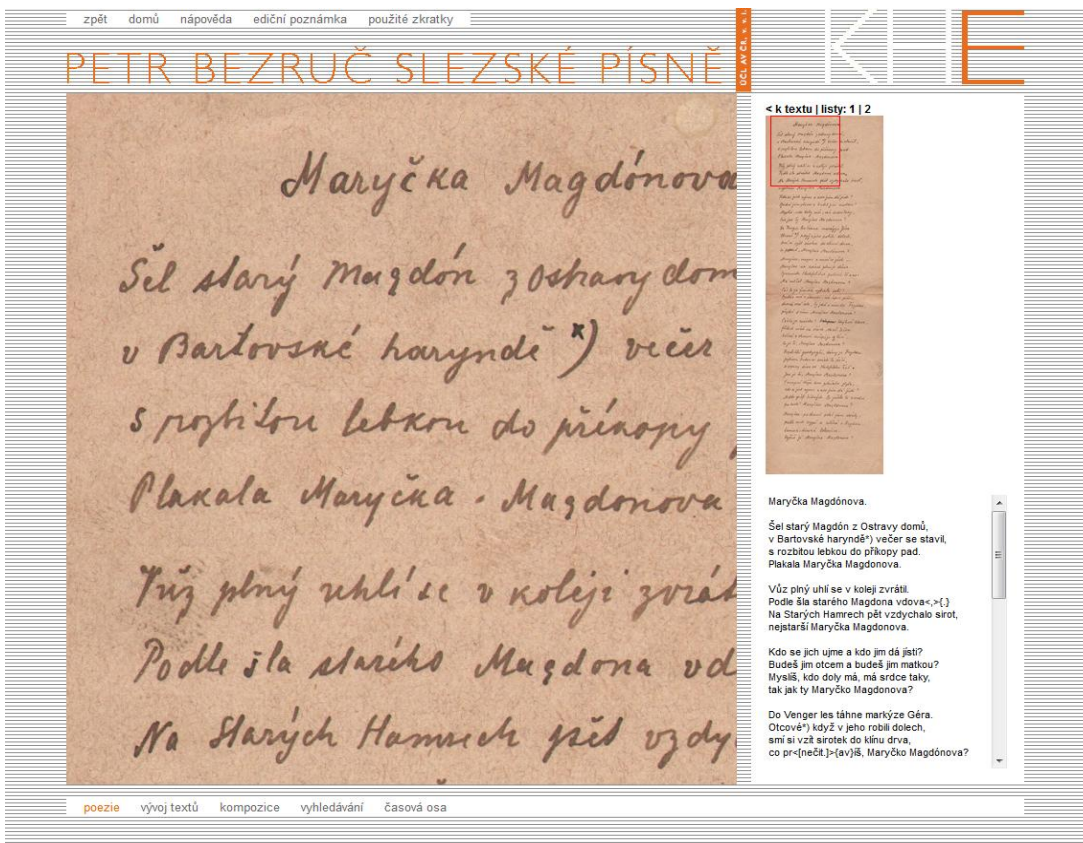 zpět domů nápověda ediční poznámka použité zkratky
PETR BEZRUČ SLEZSKÉ PÍSNĚ
ÚČL AV ČR, v. v. i.
KE
Maryčka Magdónova
Šel starý Magdón z Ostravy dom
v Bartovské haryndě x) večer
s rozbitou lebkou do příkopy
Plakala Maryčka - Magdonova
Vůz plný uhlí se v koleji zvrát
Podle šla starého Magdona vd
Na Starých Hamrech pět vzdy
< k textu | listy: 1 | 2
Maryčka Magdónova.
Šel starý Magdón z Ostravy domů,
v Bartovské haryndě*) večer se stavil,
s rozbitou lebkou do příkopy pad.
Plakala Maryčka Magdonova.
Vůz plný uhlí se v koleji zvrátil.
Podle šla starého Magdona vdova<,>{.}
Na Starých Hamrech pět vzdychalo sirot,
nejstarší Maryčka Magdonova.
Kdo se jich ujme a kdo jim dá jísti?
Budeš jim otcem a budeš jim matkou?
Myslíš, kdo doly má, má srdce taky,
tak jak ty Maryčko Magdonova?
Do Venger les táhne markýze Géra.
Otcové*) když v jeho robili dolech,
smí si vzít sirotek do klínu drva,
co pr<[nečit.]>{av}íš, Maryčko Magdónova?
poezie vývoj textů kompozice vyhledávání časová osa